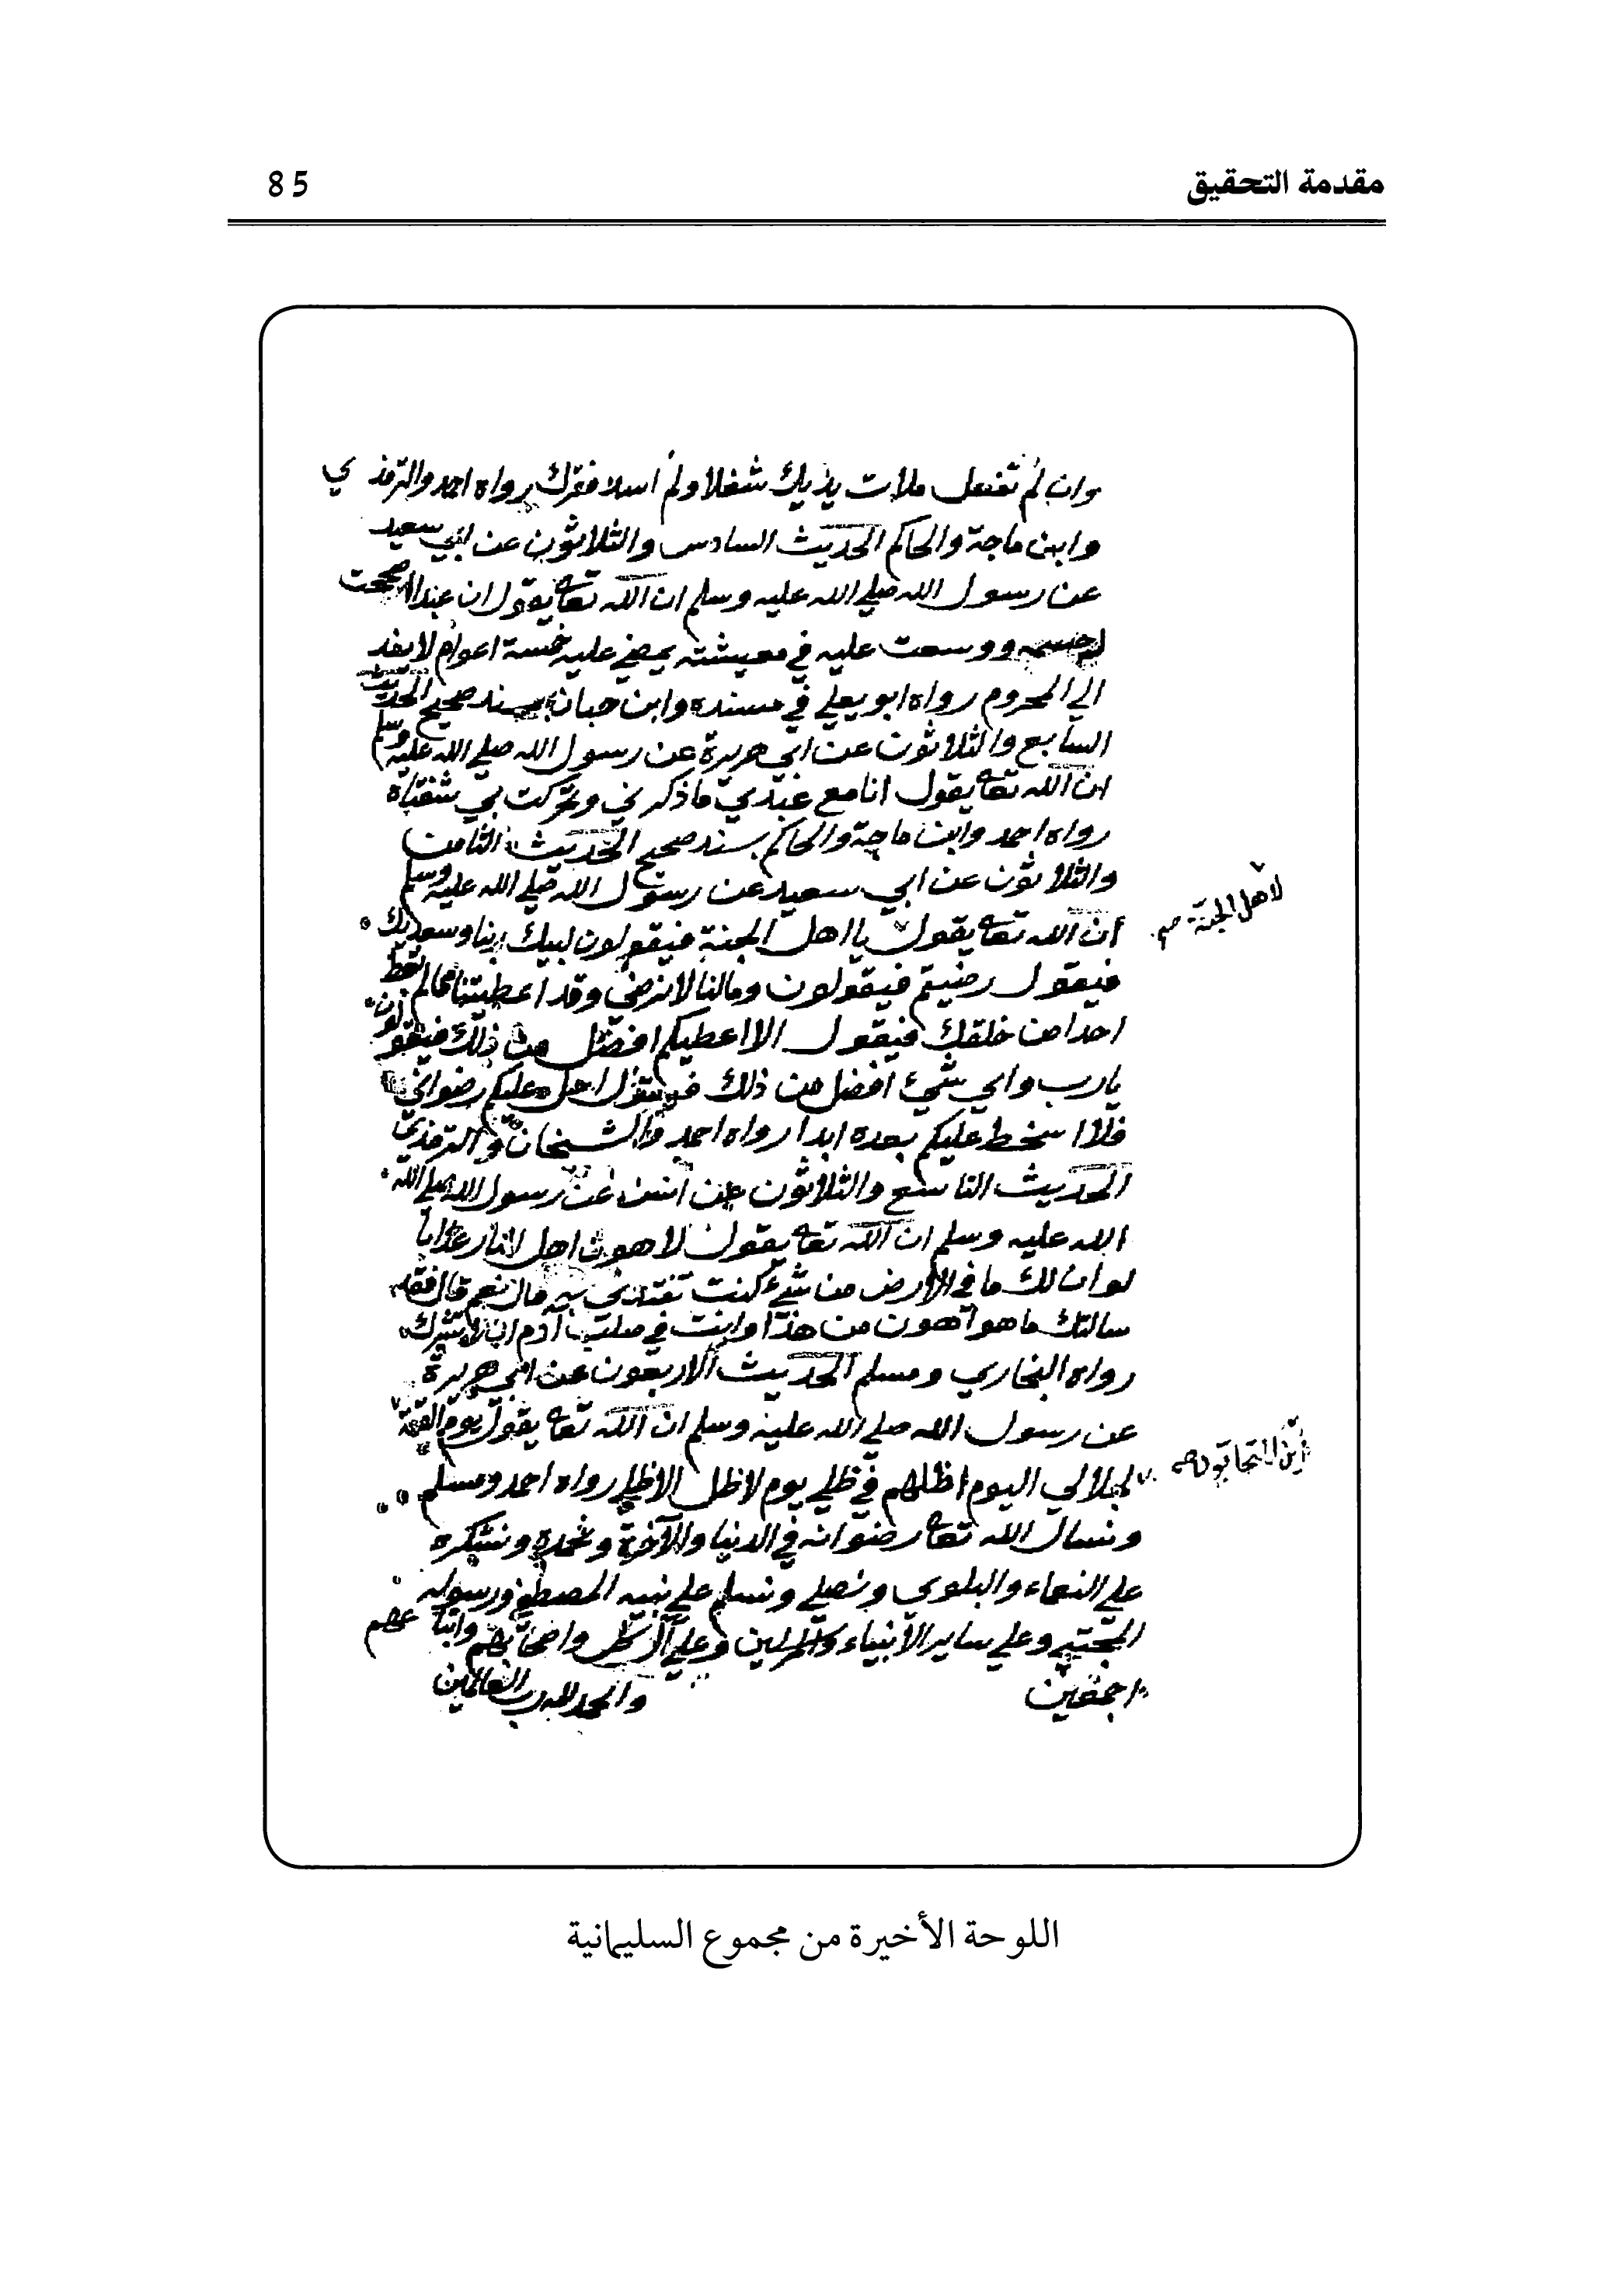 مقدمة التحقيق
85
وان لم تفعل ملات يديك شغلا ولم اسد فقرك رواه احمد والترمذي
وابن ماجة والحاكم الحديث السادس والثلاثون عن ابي سعيد
عن رسول الله صلي الله عليه وسلم ان الله تعا يقول ان عبدا صححت
له جسمه ووسعت عليه في معيشته يمضي عليه خمسة اعوام لا يفد
الي المحروم رواه ابو يعلي في مسنده وابن حبان بسند صحيح الحديث
السابع والثلاثون عن ابي هريرة عن رسول الله صلي الله عليه وسلم
ان الله تعا يقول انا مع عبدي ما ذكرني وتحركت بي شفتاه
رواه احمد وابن ماجة والحاكم بسند صحيح الحديث الثامن
والثلاثون عن ابي سعيد عن رسول الله صلي الله عليه وسلم
لاهل الجنة صح
ان الله تعا يقول يا اهل الجنة فيقولون لبيك ربنا وسعديك
فيقول رضيتم فيقولون ومالنا لا نرضي وقد اعطيتنا مالم تعط
احدا من خلقك فيقول الا اعطيكم افضل من ذلك فيقولون
يارب واي شيء افضل من ذلك فيقول احل عليكم رضواني
فلا اسخط عليكم بعده ابدا رواه احمد والشيخان والترمذي
الحديث التاسع والثلاثون عن انس عن رسول الله صلي الله
الله عليه وسلم ان الله تعا يقول لاهون اهل النار عذابا
لو ان لك ما في الارض من شيء كنت تفتدي به قال نعم قال فقد
سالتك ما هو اهون من هذا وانت في صلب آدم ان لا تشرك
رواه البخاري ومسلم الحديث الاربعون عن ابي هريرة
عن رسول الله صلي الله عليه وسلم ان الله تعا يقول يوم القيمة
اين المتحابون صح
لجلالي اليوم اظلهم في ظلي يوم لا ظل الا ظلي رواه احمد ومسلم
ونسال الله تعا رضوانه في الدنيا والآخرة ونحمده ونشكره
علي النعماء والبلوي ونصلي ونسلم علي نبيه المصطفي ورسوله
المجتبي وعلي ساير الأنبياء والمرلين وعلي آل كل واصحابهم واتباعهم
اجمعين والحمد لله رب العالمين
اللوحة الأخيرة من مجموع السليمانية